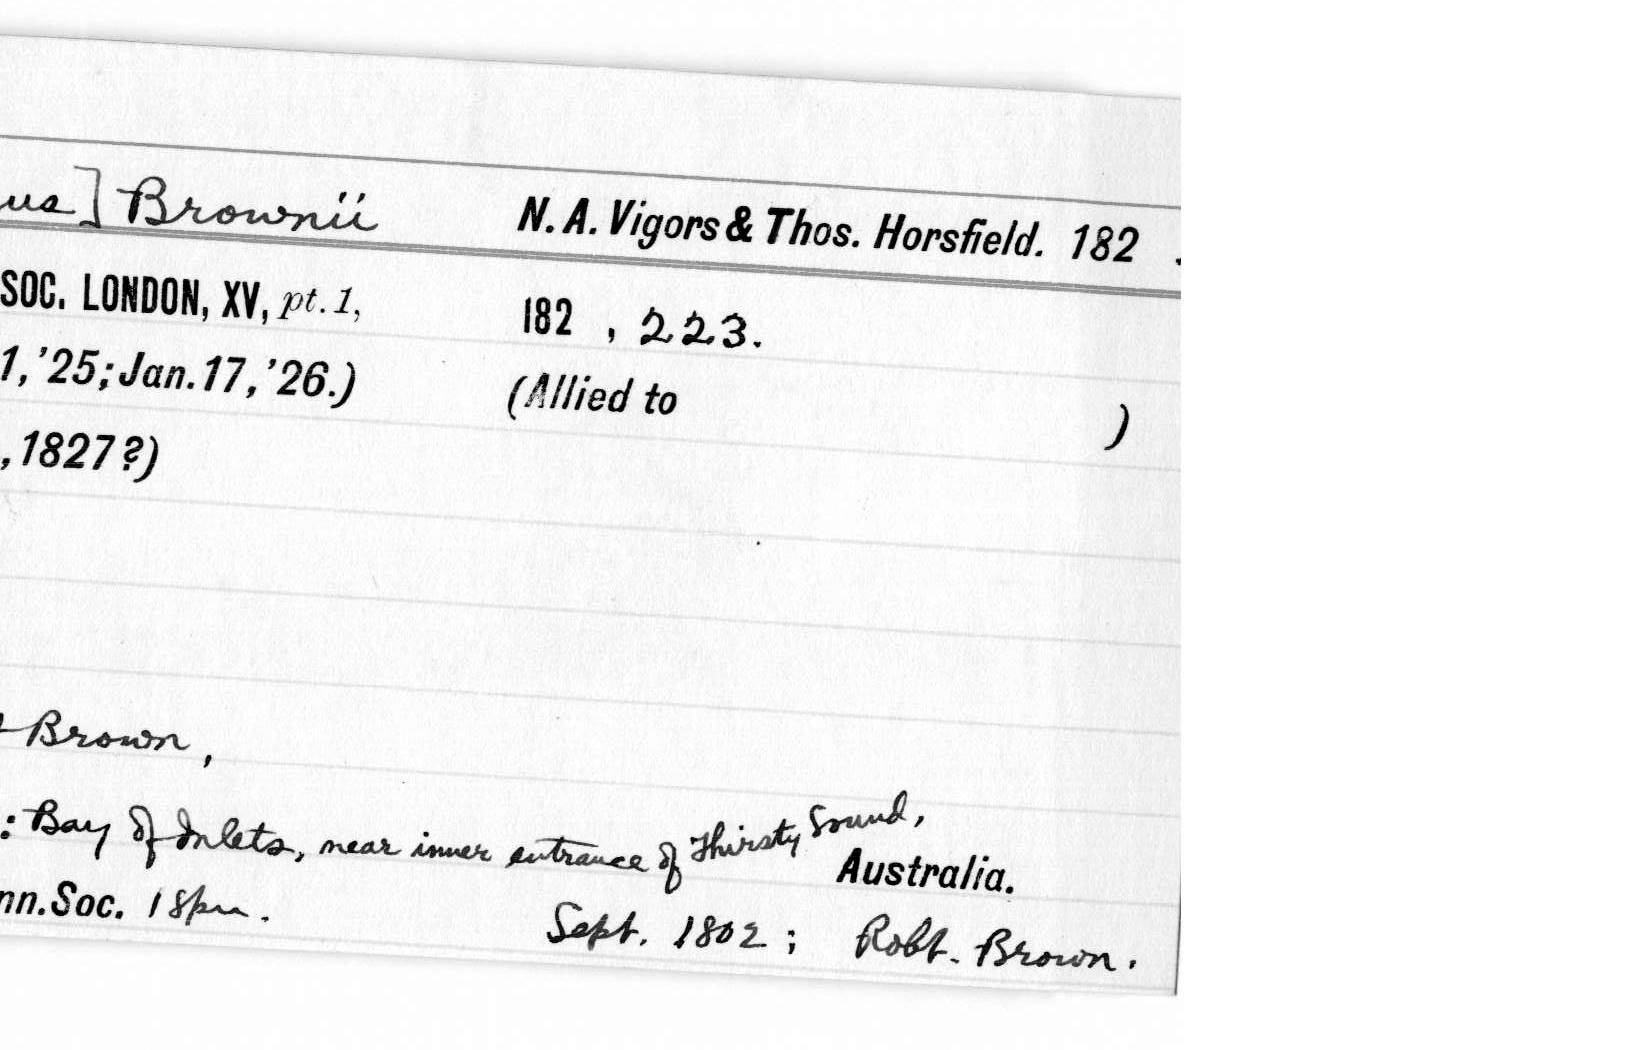 us] Brownii N. A. Vigors & Thos. Horsfield. 182 .
SOC. LONDON, XV, pt. 1, 182 , 223.
1, '25; Jan. 17, '26.) (Allied to )
, 1827?)
Brown,
: Bay of Inlets, near inner entrance of Thirsty Sound,
Australia.
nn. Soc. 1 Spm. Sept. 1802; Robt. Brown.